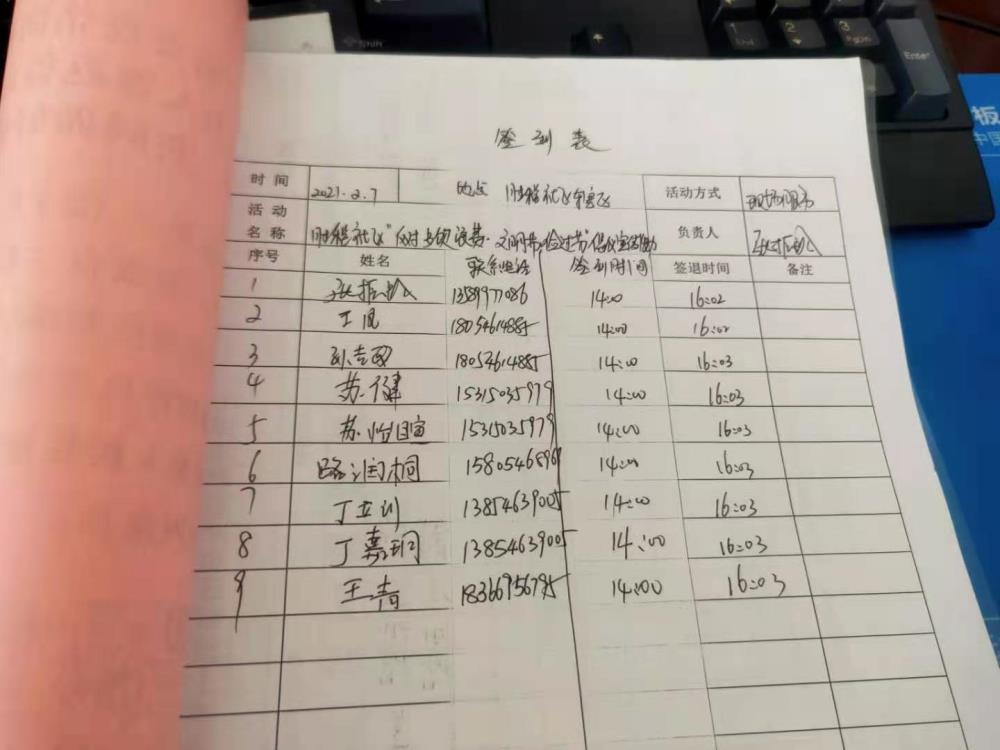 签到表
时间 2021.2.7 地点 胜苑社区辖区 活动方式 现场服务
活动名称 社区"反对 浪费·文明 节俭过节"倡议宣 活动 负责人
序号 姓名 联系电话 签到时间 签退时间 备注
1 13589977086 14:00 16:02
2 王凤 18054614885 14:00 16:02
3 18054614885 14:00 16:03
4 苏健 15315035979 14:00 16:03
5 苏怡暄 15315035979 14:00 16:03
6 路润桐 14:00 16:03
7 丁立训 13854639005 14:00 16:03
8 丁嘉玥 13854639005 14:00 16:03
9 王青 18366956795 14:00 16:03
Enter